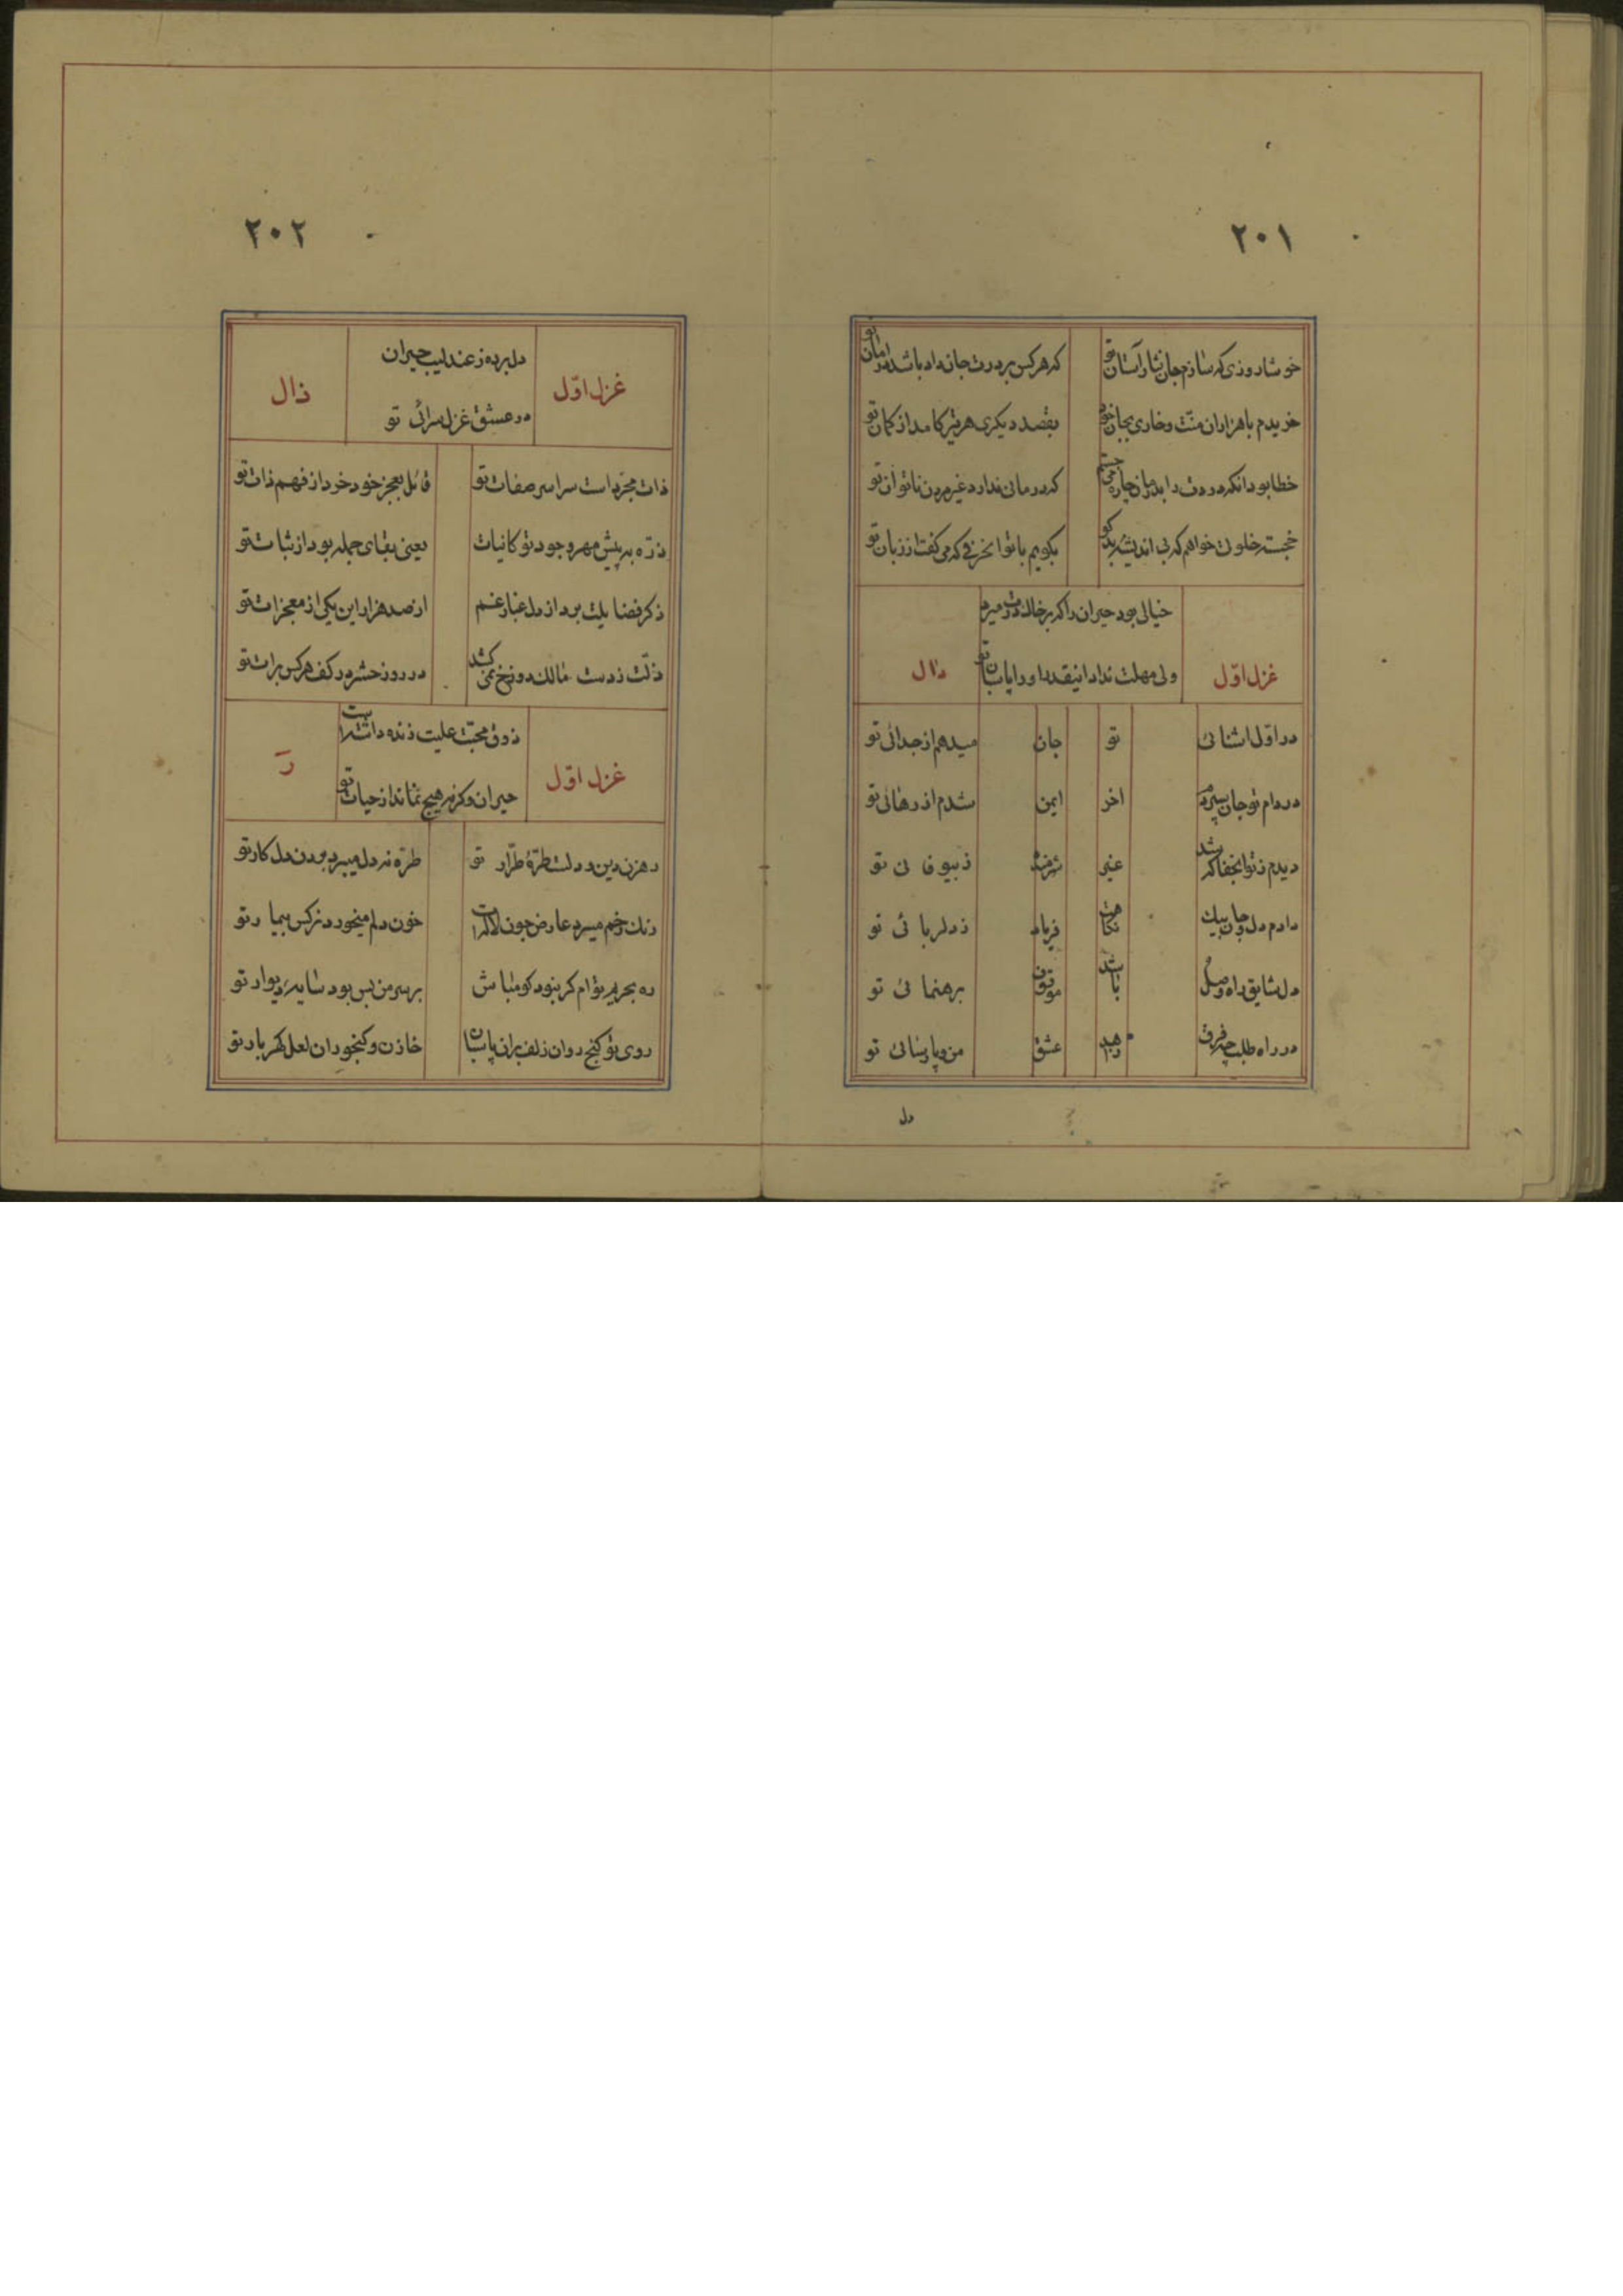 ۲۰۱
خوشا روزی که سازم جان نثار آستان تو
که هر کس بر درت جان داد باشد در امان تو
خریدم با هزاران منت و خاری بجان خود
بقصد دیکری هر تیر کامد از کمان تو
خطا بود انکه دردت را بدرمان چاره می جستم
که درمانی ندارد غیر مردن ناتوان تو
خجسته خلوتی خواهم که بی اندیشه بدکو
بکویم با تو انحرفی که می کفتا ز زبان تو
خیالی بود حیران را که بر خاک درت میرد
ولی مهلت نداد انیقدر او را پاسبان تو
غزل اوّل
دال
در اوّل اشنائی تو جان میدهم از جدائی تو
در دام تو جان سپردم اخر ایمن شدم از رهائی تو
دیدم ز تو انجفا که شد غیر شرمنده ز بیوفائی تو
دارم دل و جان بیک نکاهت فریاد ز دلربائی تو
دل شایق راه وصل باشد موقوف برهنمائی تو
در راه طلب چه فرق زاهد عشق من و پارسائی تو
دل
۲۰۲
دل برده ز عندلیب حیران
در عشق غزل سرائی تو
غزل اوّل
ذال
ذات مجرّد است سراسر صفات تو
قائل بعجز خود خرد از فهم ذات تو
ذرّه به پیش مهر وجود تو کانیات
یعنی بقای جمله بود از ثبات تو
ذکر فضایلت برد از دل غبار غم
از صد هزار این یکی از معجزات تو
ذلّت ز دست مالک دوزخ نمی کشد
در روز حشر در کف هر کس برات تو
ذوق محبّت علیت زنده داشته است
حیران و کرنه هیچ نماند از حیات تو
غزل اوّل
رَ
رهزن دین و دلست طرّهٔ طرّار تو
طرّه نه دل میبرد بردن دل کار تو
رنک رخم میبرد عارض چون لاله ات
خون دلم میخورد نرکس بیمار تو
ره بحریم توام کر نبود کو مباش
بر سر من بس بود سایهٔ دیوار تو
روی تو کنج روان زلف بران پاسبان
خازن و کنجور ان لعل کهربار تو